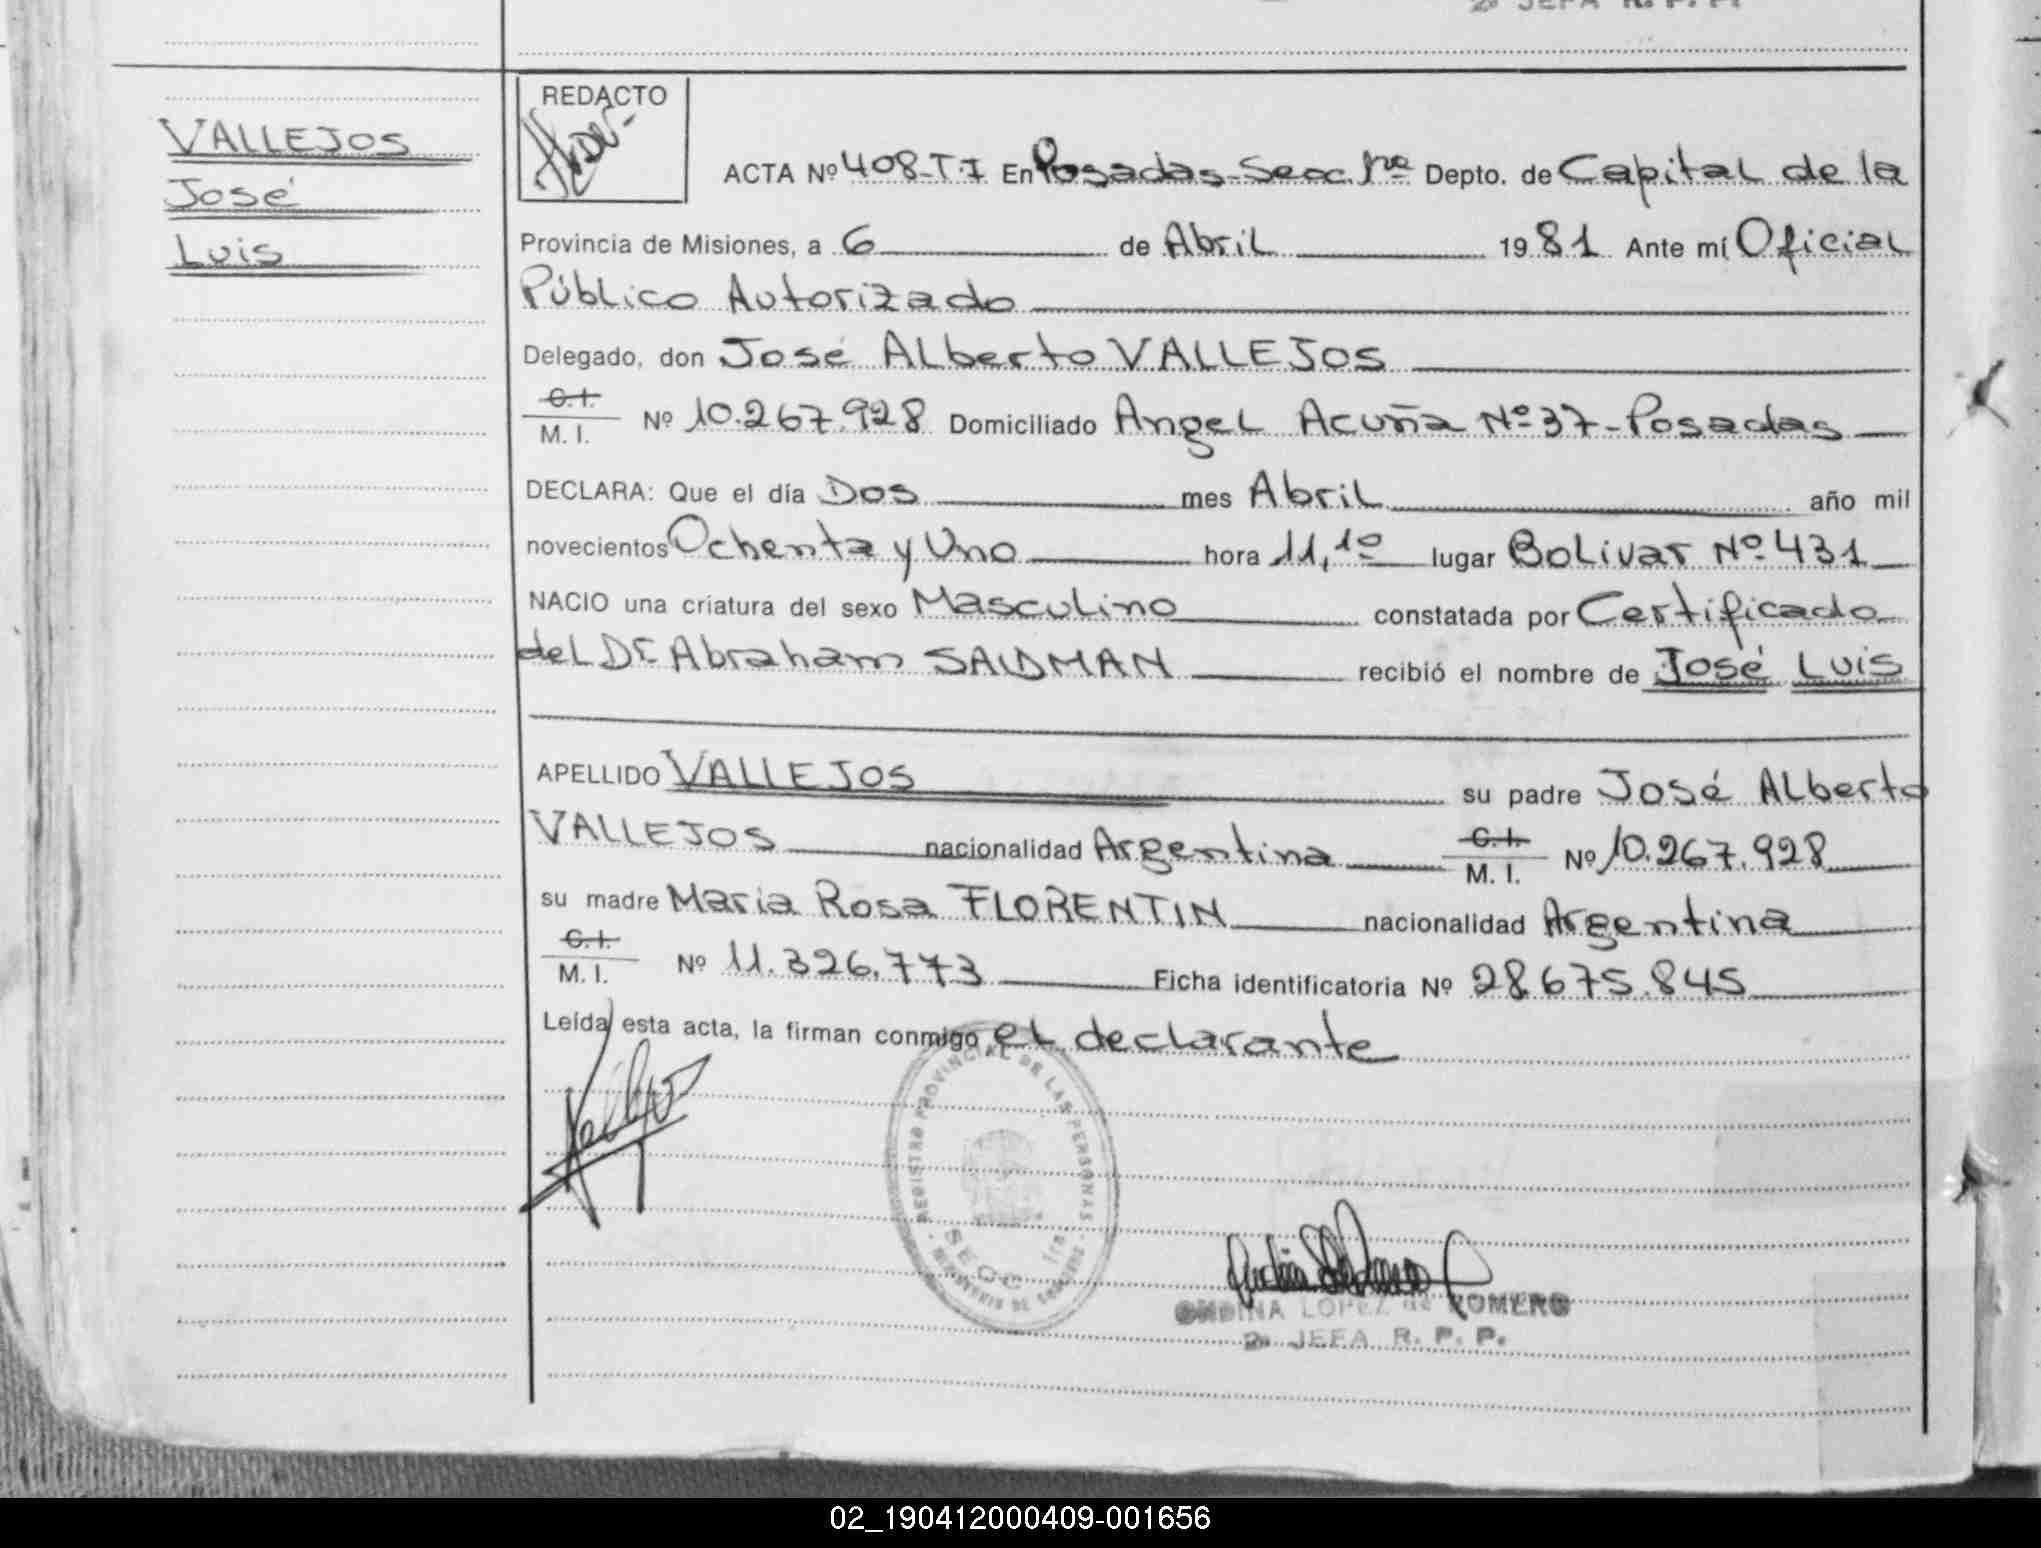 2º JEFA R. P. P.
VALLEJOS
José
Luis
REDACTO
ACTA Nº 408-T.I En Posadas-Secc. 1ra Depto. de Capital de la
Provincia de Misiones, a 6 de Abril 1981 Ante mí Oficial
Público Autorizado
Delegado, don José Alberto VALLEJOS
C. I.
M. I. Nº 10.267.928 Domiciliado Angel Acuña Nº 37-Posadas
DECLARA: Que el día Dos mes Abril año mil
novecientos Ochenta y Uno hora 11,10 lugar Bolivar Nº 431
NACIO una criatura del sexo Masculino constatada por Certificado
del Dr. Abraham recibió el nombre de José Luis
APELLIDO VALLEJOS su padre José Alberto
VALLEJOS nacionalidad Argentina C. I. M. I. Nº 10.267.928
su madre Maria Rosa FLORENTIN nacionalidad Argentina
C. I.
M. I. Nº 11.326.773 Ficha identificatoria Nº 28.675.845
Leída esta acta, la firman conmigo el declarante
REGISTRO PROVINCIAL DE LAS PERSONAS
SECC. 1ra
MINISTERIO DE GOBIERNO
ONDINA LOPEZ de ROMERO
2º JEFA R. P. P.
02_190412000409-001656